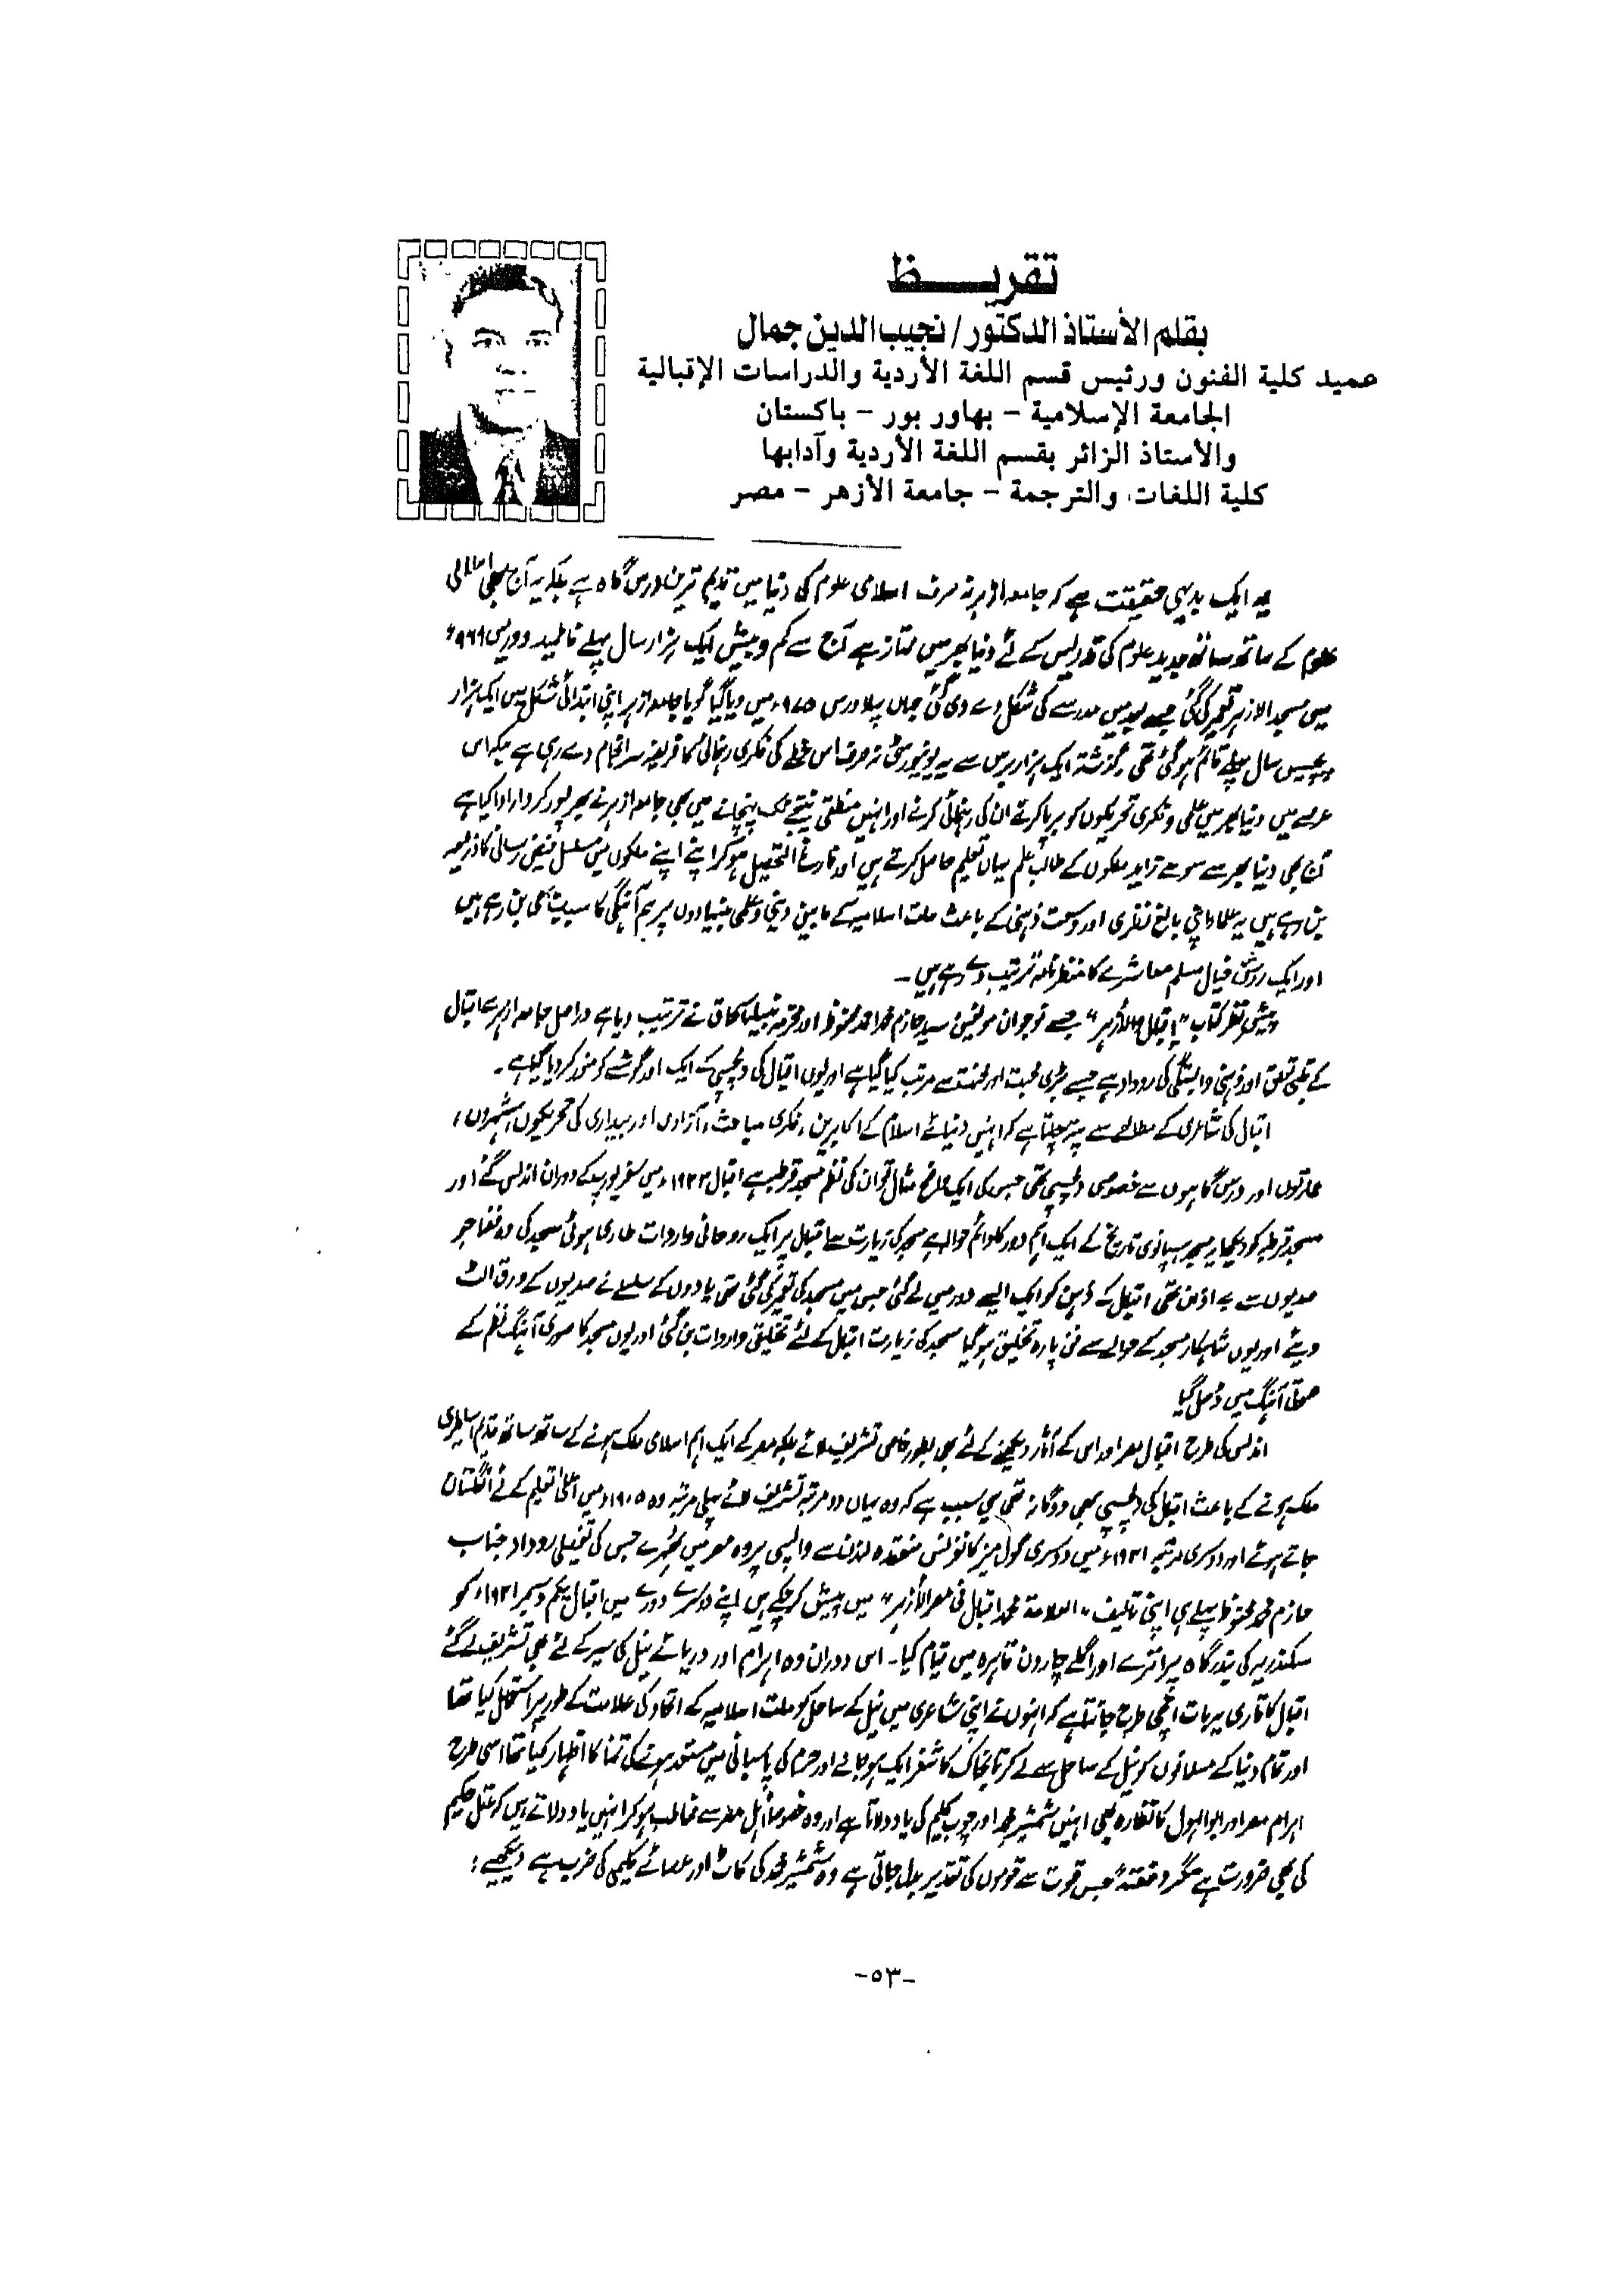 تقريظ
بقلم الأستاذ الدكتور / نجيب الدين جمال
عميد كلية الفنون ورئيس قسم اللغة الأردية والدراسات الإقبالية
الجامعة الإسلامية - بهاور بور - باكستان
والأستاذ الزائر بقسم اللغة الأردية وآدابها
كلية اللغات والترجمة - جامعة الأزهر - مصر
یہ ایک بدیہی حقیقت ہے کہ جامعہ ازہر نہ صرف اسلامی علوم کی دنیا میں قدیم ترین درس گاہ ہے بلکہ یہ آج بھی اسلامی
علوم کے ساتھ ساتھ جدید علوم کی تدریس کے لئے دنیا بھر میں ممتاز ہے آج سے کم و بیش ایک ہزار سال پہلے فاطمید دور میں ۹۶۹ء
میں مسجد الازہر تعمیر کی گئی جسے بعد میں مدرسے کی شکل دے دی گئی جہاں پہلا درس ۹۷۵ء میں دیا گیا گویا جامعہ ازہر اپنی ابتدائی شکل میں ایک ہزار
پچیس سال پہلے قائم ہو گئی تھی گذشتہ ایک ہزار برس سے یہ یونیورسٹی نہ صرف اس خطے کی فکری رہنمائی کا فریضہ سرانجام دے رہی ہے بلکہ اس
عرصے میں دنیا بھر میں علمی و فکری تحریکوں کو برپا کرنے ان کی رہنمائی کرنے اور انہیں منطقی نتیجے تک پہنچانے میں بھی جامعہ ازہر نے بھرپور کردار ادا کیا ہے
آج بھی دنیا بھر سے سو سے زاید ملکوں کے طالب علم یہاں تعلیم حاصل کرتے ہیں اور فارغ التحصیل ہو کر اپنے اپنے ملکوں میں مسلسل فیض رسانی کا ذریعہ
بن رہے ہیں یہ علماء اپنی بالغ نظری اور وسعت ذہنی کے باعث ملت اسلامیہ کے مابین دینی و علمی بنیادوں پر ہم آہنگی کا سبب بھی بن رہے ہیں
اور ایک روشن خیال مسلم معاشرے کا منظر نامہ ترتیب دے رہے ہیں ۔
پیش نظر کتاب "اقبال والأزہر" جسے نوجوان مولفین سید حازم محمد احمد محفوظ اور محترمہ نبیلہ اسحاق نے ترتیب دیا ہے دراصل جامعہ ازہر سے اقبال
کے قلبی تعلق اور ذہنی وابستگی کی روداد ہے جسے بڑی محبت اور محنت سے مرتب کیا گیا ہے اور یوں اقبال کی دلچسپی کے ایک اور گوشے کو منور کر دیا گیا ہے ۔
اقبال کی شاعری کے مطالعے سے پتہ چلتا ہے کہ انہیں دنیائے اسلام کے اکابرین ، فکری مباحث ، آزادی اور بیداری کی تحریکوں ، شہروں ،
عمارتوں اور درس گاہوں سے خصوصی دلچسپی تھی جس کی ایک واضح مثال تو ان کی نظم مسجد قرطبہ ہے اقبال ۱۹۳۳ء میں سفر یورپ کے دوران اندلس گئے اور
مسجد قرطبہ کو دیکھا یہ مسجد ہسپانوی تاریخ کے ایک اہم دور کا دائم حوالہ ہے مسجد کی زیارت سے اقبال پر ایک روحانی واردات طاری ہوئی مسجد کی وہ فضا جو
صدیوں سے بے اذان تھی اقبال کے ذہن کو ایک ایسے دور میں لے گئی جس میں مسجد کی تعمیر کی گئی تھی یادوں کے سلسلے نے صدیوں کے ورق الٹ
دیئے اور یوں شاہکار مسجد کے حوالے سے فن پارہ تخلیق ہو گیا مسجد کی زیارت اقبال کے لئے تخلیقی واردات بن گئی اور یوں مسجد کا صوری آہنگ نظم کے
صوتی آہنگ میں ڈھل گیا
اندلس کی طرح اقبال مصر اور اس کے آثار دیکھنے کے لئے بھی بطور خاص تشریف لائے بلکہ مصر کے ایک اہم اسلامی ملک ہونے کے ساتھ ساتھ قدیم اساطیری
ملک ہونے کے باعث اقبال کی دلچسپی بھی دوگانہ تھی یہی سبب ہے کہ وہ یہاں دو مرتبہ تشریف لائے پہلی مرتبہ وہ ۱۹۰۵ء میں اعلیٰ تعلیم کے لئے انگلستان
جاتے ہوئے اور دوسری مرتبہ ۱۹۳۱ء میں دوسری گول میز کانفرنس منعقدہ لندن سے واپسی پر وہ مصر میں ٹھہرے جس کی تفصیلی روداد جناب
حازم محمد محفوظ پہلے ہی اپنی تالیف "العلامة محمد اقبال فی مصر الأزہر" میں پیش کر چکے ہیں اپنے دوسرے دورے میں اقبال یکم دسمبر ۱۹۳۱ء کو
سکندریہ کی بندرگاہ پر اترے اور اگلے چار دن قاہرہ میں قیام کیا ۔ اس دوران وہ اہرام اور دریائے نیل کی سیر کے لئے بھی تشریف لے گئے
اقبال کا قاری یہ بات اچھی طرح جانتا ہے کہ انہوں نے اپنی شاعری میں نیل کے ساحل کو ملت اسلامیہ کے اتحاد کی علامت کے طور پر استعمال کیا تھا
اور تمام دنیا کے مسلمانوں کو نیل کے ساحل سے لے کر تابخاک کاشغر ایک ہو جانے اور حرم کی پاسبانی میں مستعد ہونے کی تمنا کا اظہار کیا تھا اسی طرح
اہرام مصر اور ابوالہول کا نظارہ بھی انہیں شمشیر محمد اور چوب کلیم کی یاد دلاتا ہے اور وہ خصوصاً اہل مصر سے مخاطب ہو کر انہیں یاد دلاتے ہیں کہ عقل حکیم
کی بھی ضرورت ہے مگر دفعتہً جس قوت سے قوموں کی تقدیر بدل جاتی ہے وہ شمشیر محمد کی کاٹ اور عصائے کلیمی کی ضرب ہے دیکھیے :
-٥٣-